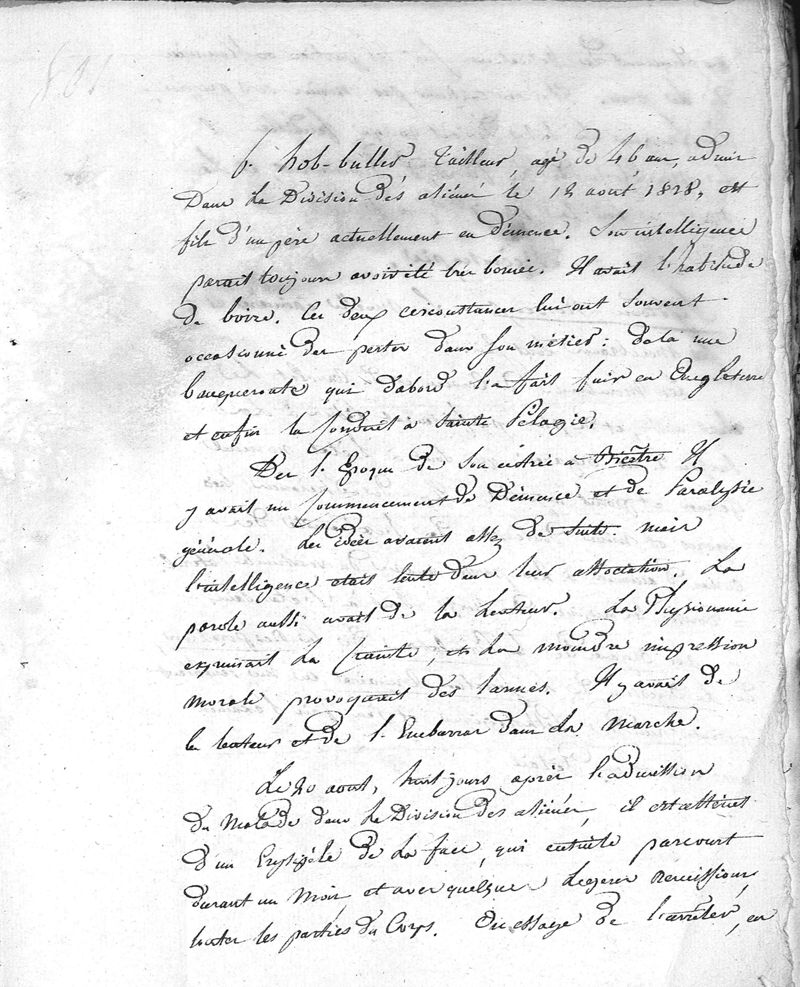 f. hob-butler Tailleur, agé de 46 ans, admis
Dans la Division des aliénés le 12 aout 1828, est
fils d'un père actuellement en démence. Son intelligence
parait toujours avoir été très bornée. Il avait l'habitude
de boire. Ces deux circonstances lui ont souvent
occasionné des pertes dans son métier: de là une
banqueroute qui d'abord l'a fait fuir en Angleterre
et enfin la Conduit à Sainte Pélagie.
Dès l'Epoque de son entrée à Bicêtre Il
y avait un Commencement de Démence et de Paralysie
générale. Les idées avaient assez de suite. mais
l'intelligence etait lente dans leur association. La
parole aussi avait de la Lenteur. La Physionomie
exprimait La Crainte, et La moindre impression
morale provoquait des larmes. Il y avait de
la lenteur et de l'Embarras dans la marche.
Le 20 aout, huit jours après l'admission
du Malade dans la Division des aliénés, il est atteint
d'un Erysipèle de la face, qui ensuite parcourt
durant un Mois, et avec quelques Legeres remissions,
toutes les parties du Corps. On essaye de l'arrêter, en